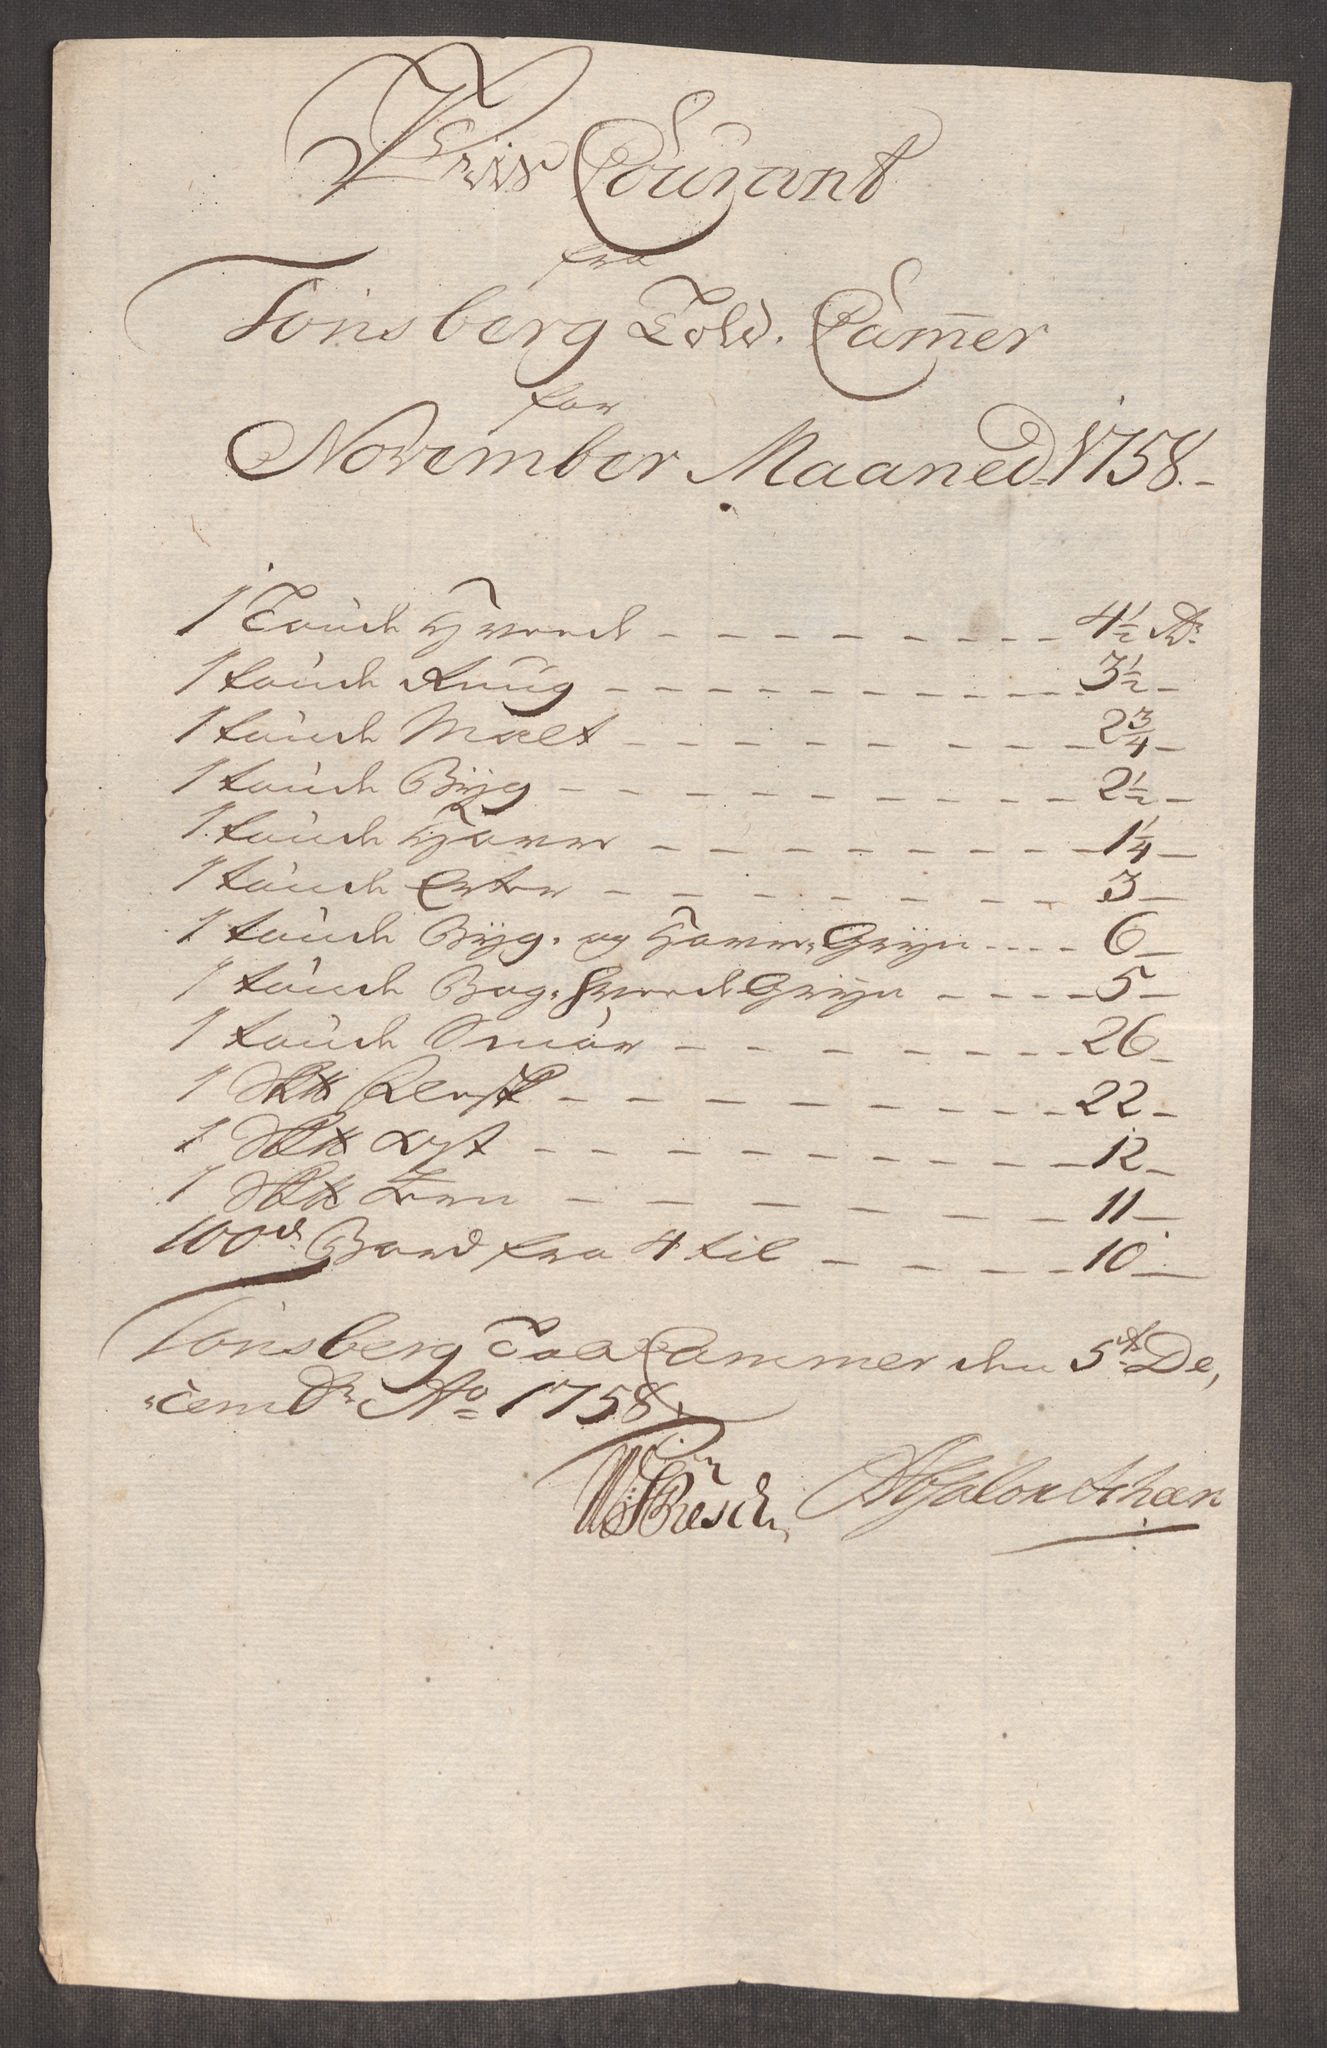 Pris Courant
fra
Tonsberg Told. Cam̅er
for
November Maaned 1758.
1 Tønde Hvede 4½ Rdr
1 tønde Rüg 3½
1 tønde Malt 2¾
1 tønde Bÿg 2½
1 tønde Havre 1¼
1 tønde Erter 3
1 tønde Bÿg- og Havre-Grÿn 6
1 tønde Bog-hvede Grÿn 5
1 tønde Smør 26
1 Sk℔ Flesk 22
1 Sk℔ Ost 12
1 Sk℔ Jern 11
100de Bord fra 4 til 10
Tonsberg Told Cammer den 5te De,
cembr Ao 1758
Resch Absalon